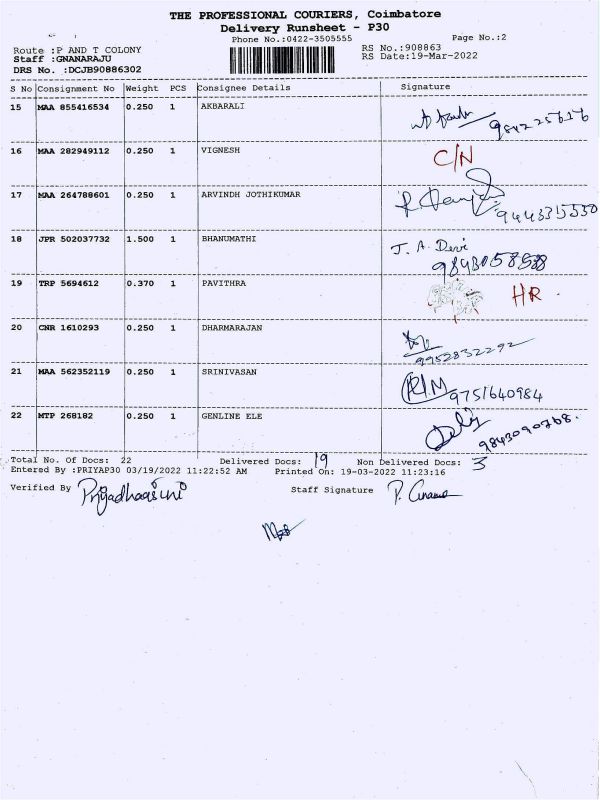 THE PROFESSIONAL COURIERS, Coimbatore
Delivery Runsheet - P30
Phone No.:0422-3505555 Page No.:2
Route :P AND T COLONY RS No.:908863
Staff :GNANARAJU RS Date:19-Mar-2022
DRS No. :DCJB90886302
S No Consignment No Weight PCS Consignee Details Signature
15 MAA 855416534 0.250 1 AKBARALI
16 MAA 282949112 0.250 1 VIGNESH C/N
17 MAA 264788601 0.250 1 ARVINDH JOTHIKUMAR
18 JPR 502037732 1.500 1 BHANUMATHI J. A. Devi
19 TRP 5694612 0.370 1 PAVITHRA HR.
20 CNR 1610293 0.250 1 DHARMARAJAN
9952832292
21 MAA 562352119 0.250 1 SRINIVASAN
9751640984
22 MTP 268182 0.250 1 GENLINE ELE
9843090768.
Total No. Of Docs: 22 Delivered Docs: 19 Non Delivered Docs: 3
Entered By :PRIYAP30 03/19/2022 11:22:52 AM Printed On: 19-03-2022 11:23:16
Verified By Staff Signature